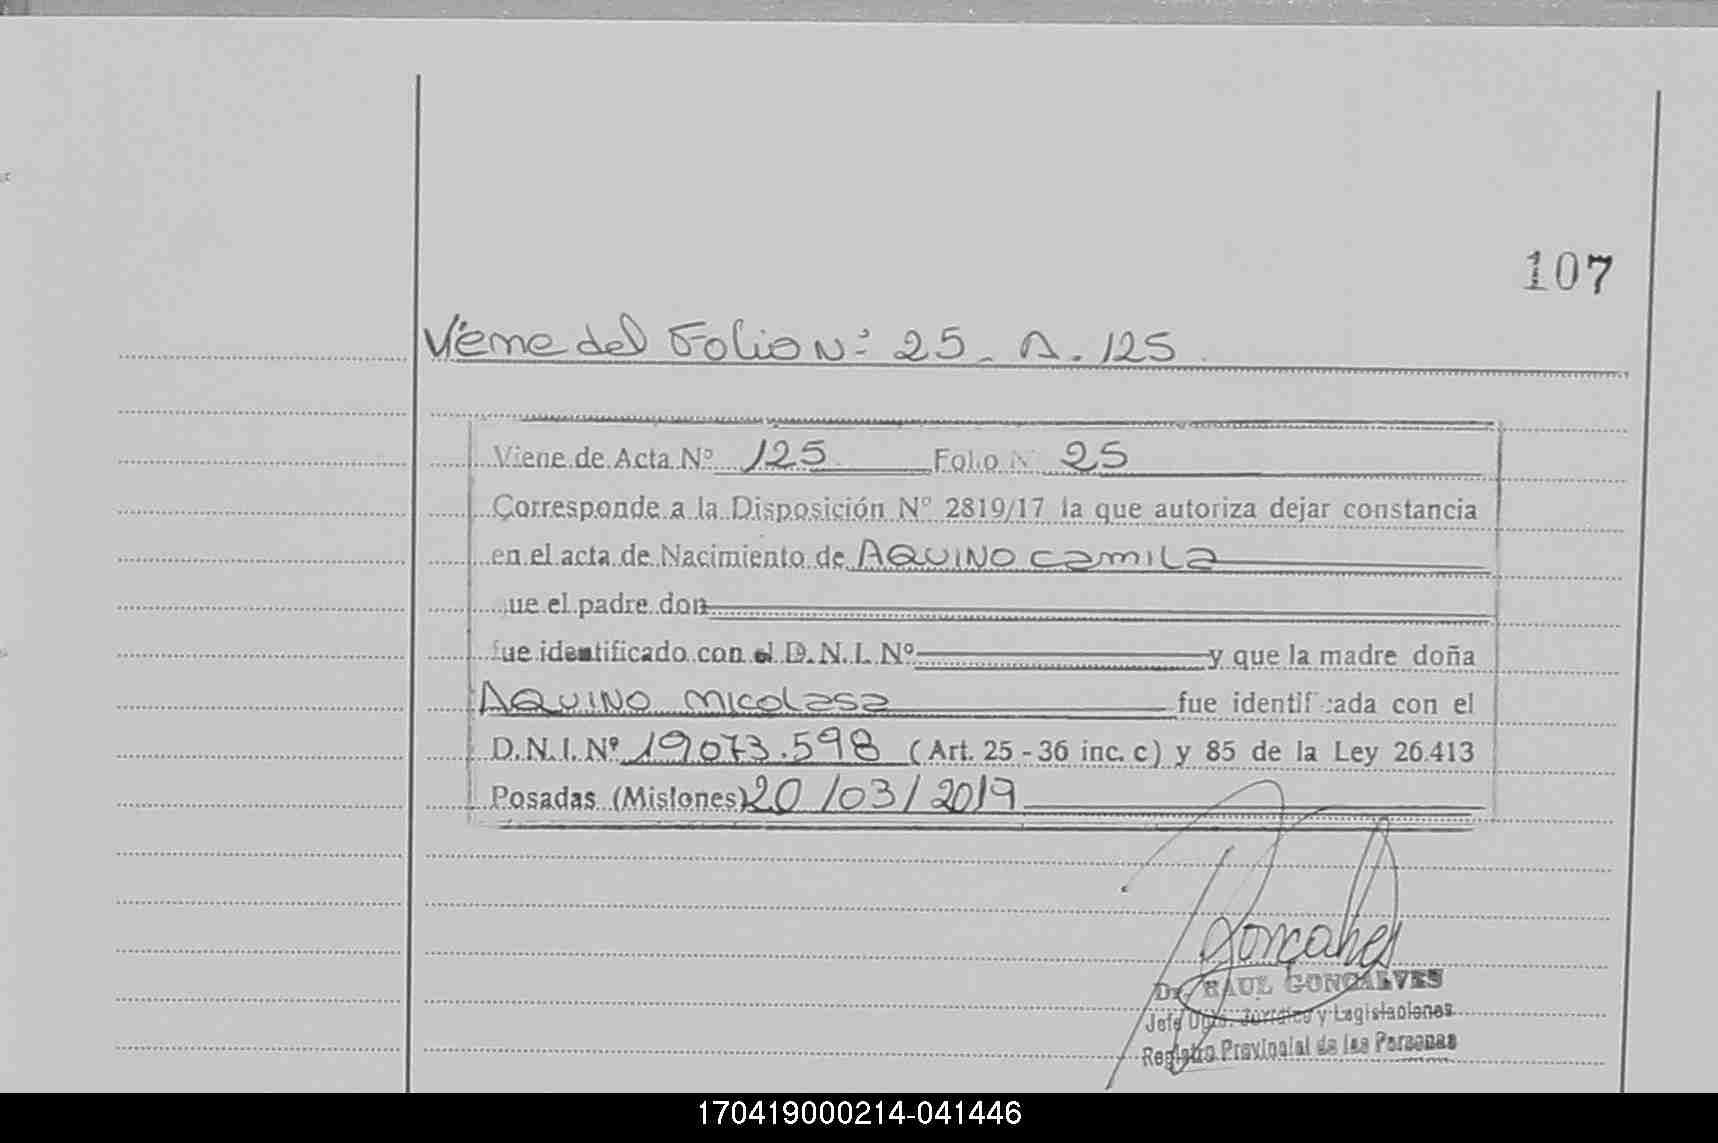 107
Viene del Folio Nº 25 - A. 125
Viene de Acta Nº 125 Folio N 25
Corresponde a la Disposición Nº 2819/17 la que autoriza dejar constancia
en el acta de Nacimiento de AQUINO Camila
que el padre don
fue identificado con el D.N.I. Nº y que la madre doña
AQUINO Nicolasa fue identificada con el
D.N.I. Nº 19073.598 (Art. 25 - 36 inc. c) y 85 de la Ley 26.413
Posadas (Misiones) 20/03/2019
Goncalves
Dr. RAUL GONCALVES
Jefe Dpto. Jurídico y Legislaciones
Registro Provincial de las Personas
170419000214-041446